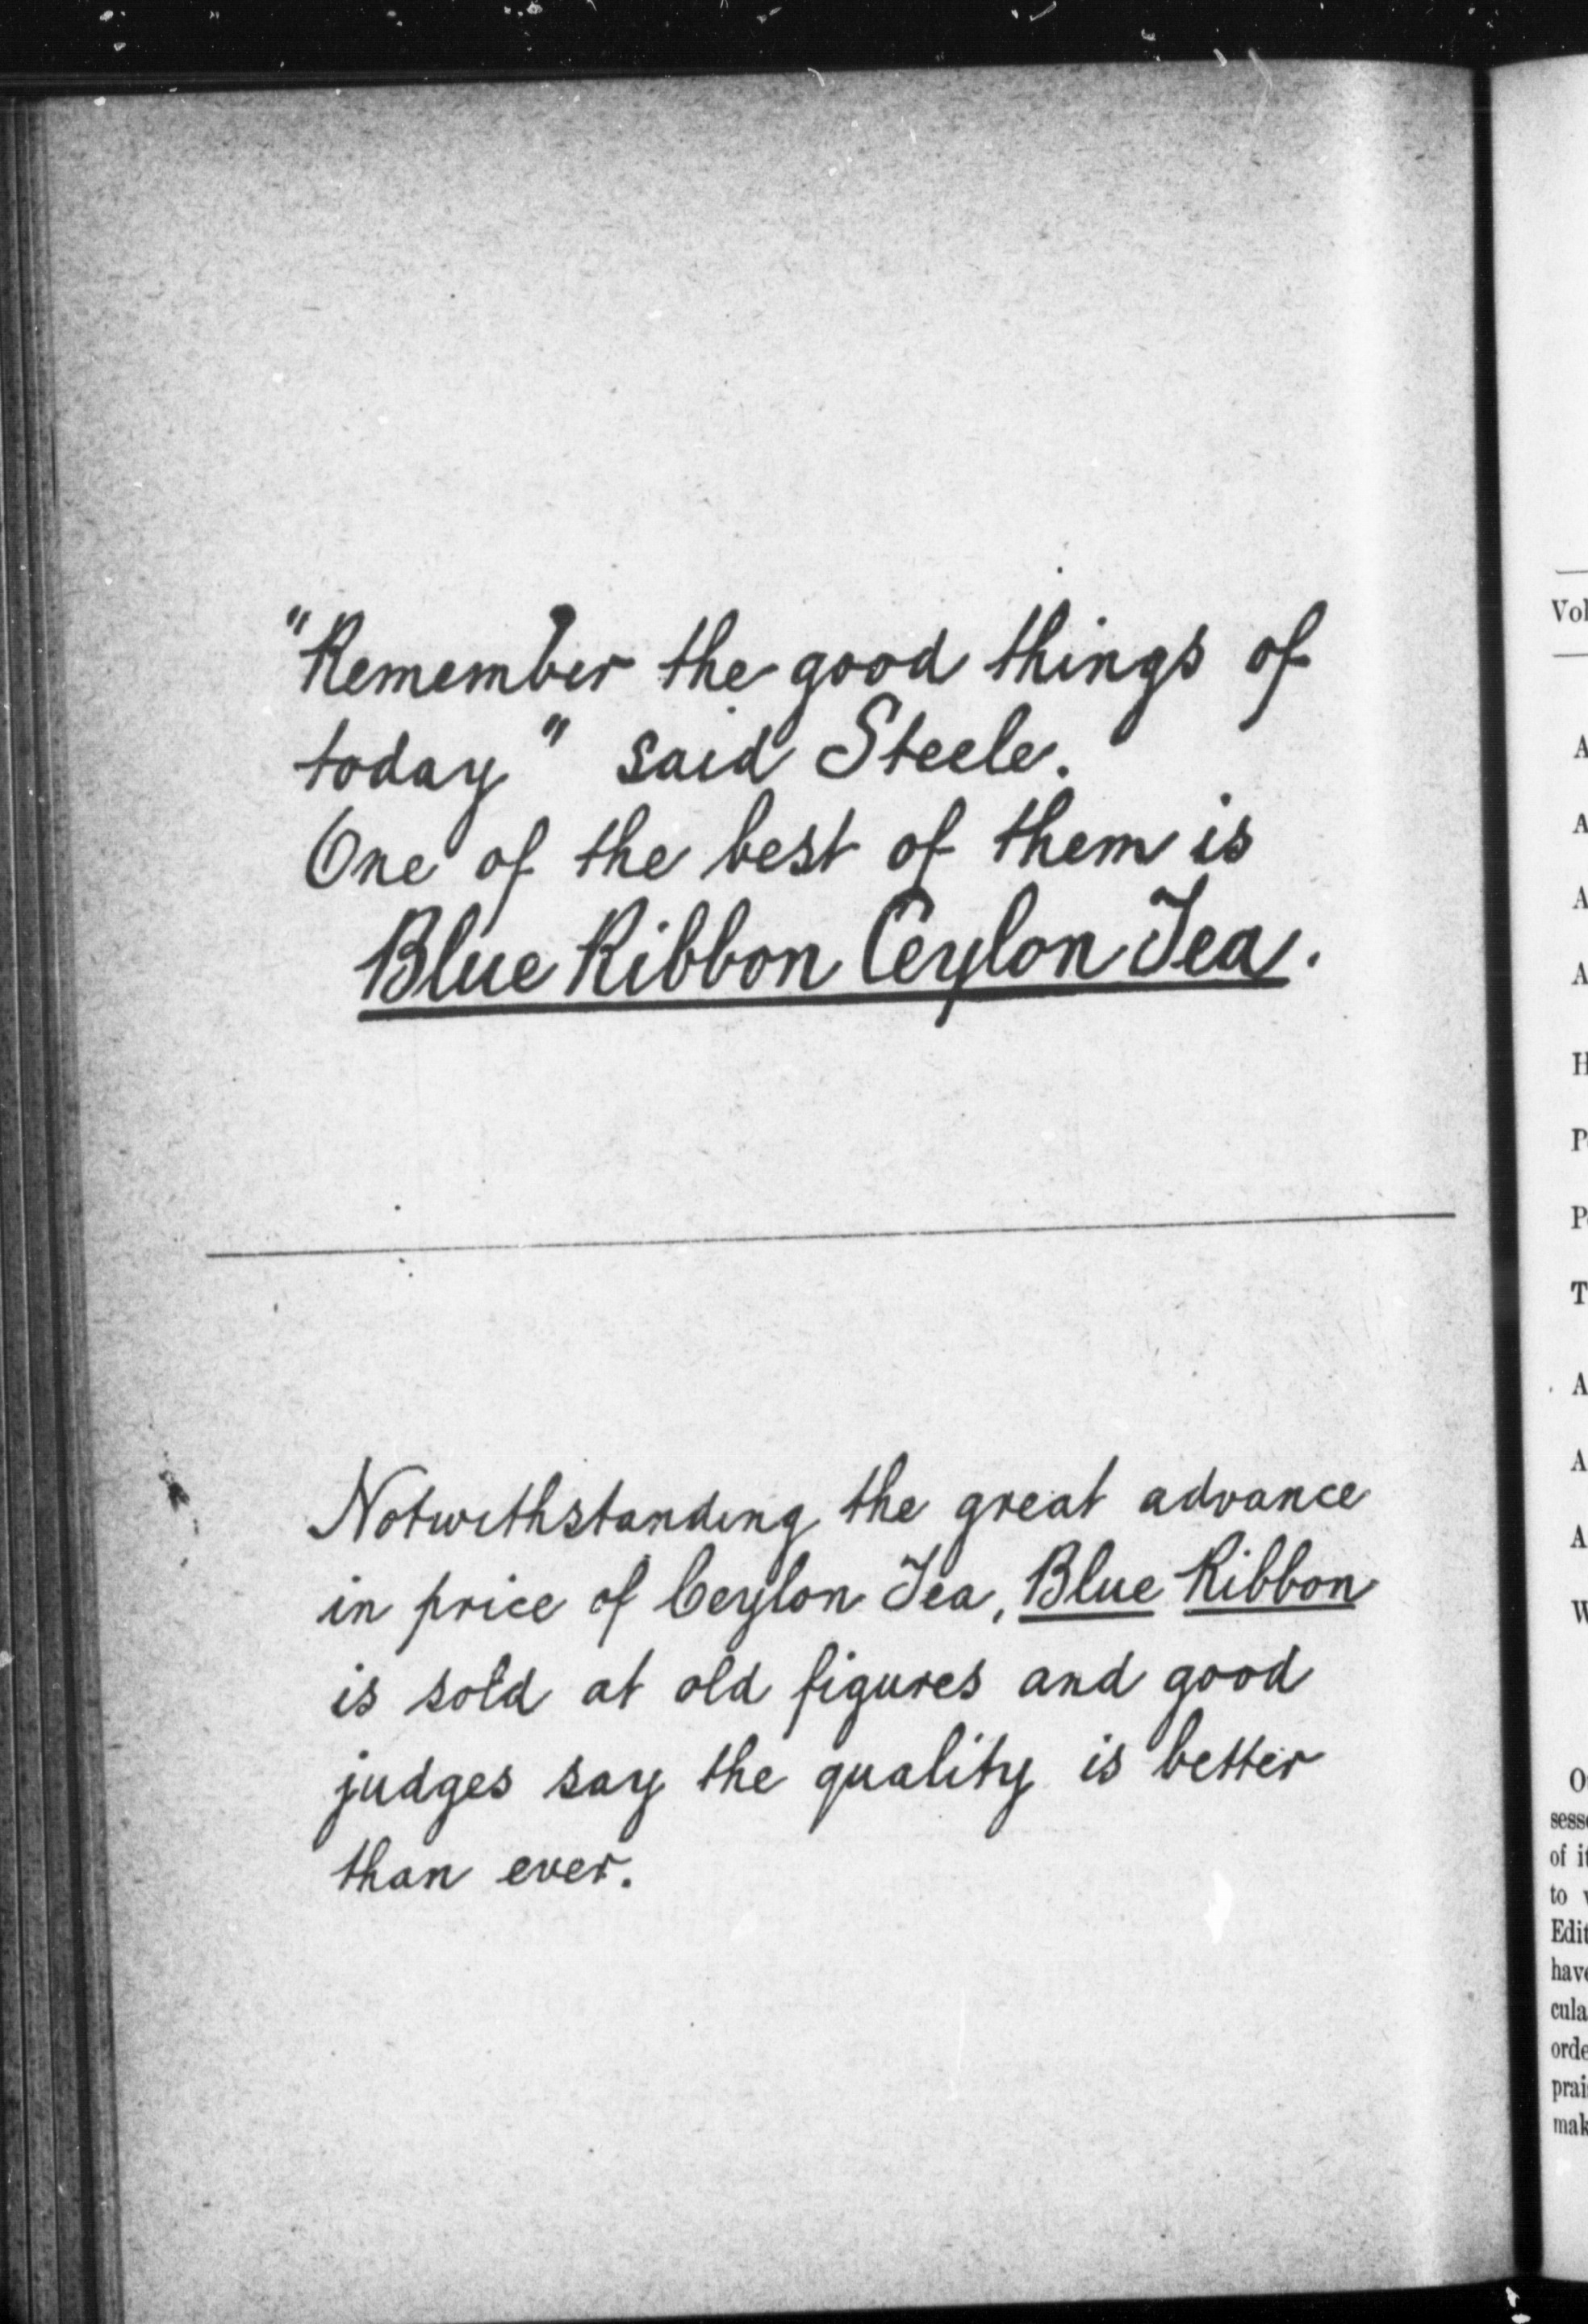 "Remember the good things of
today" said Steele.
One of the best of them is
Blue Ribbon Ceylon Tea.
Notwithstanding the great advance
in price of Ceylon Tea, Blue Ribbon
is sold at old figures and good
judges say the quality is better
than ever.
Vol
A
A
A
A
H
P
P
T
A
A
A
W
of
to